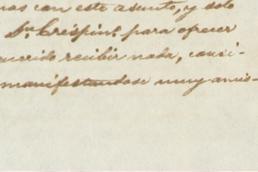 nas con este asunto, y solo
Dn. Crispin. para ofrecer
querido recibir nada, consi-
manifestandose muy amis-